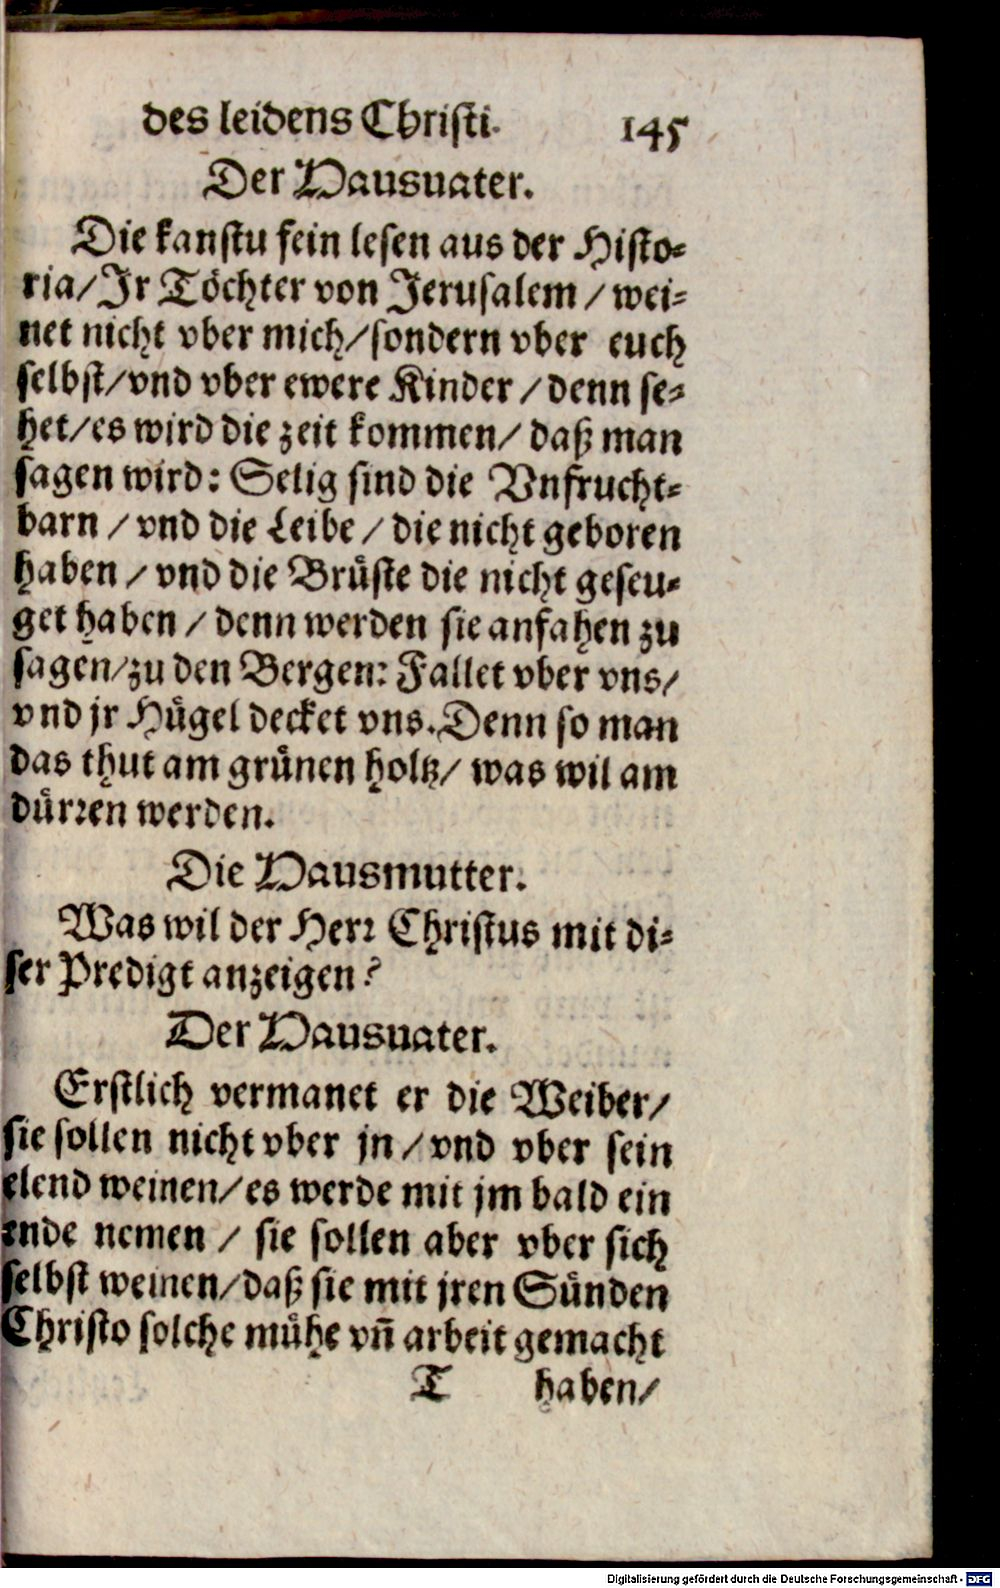 des leidens Christi. 145
Der Hausuater.
Die kanstu fein lesen aus der Histo⸗
ria/Jr Töchter von Jerusalem/wei⸗
net nicht vber mich/sondern vber euch
selbst/vnd vber ewere Kinder/denn se⸗
het/es wird die zeit kommen/daß man
sagen wird: Selig sind die Vnfrucht⸗
barn/vnd die Leibe/die nicht geboren
haben/vnd die Brüste die nicht geseu⸗
get haben/denn werden sie anfahen zu
sagen/zu den Bergen: Fallet vber vns/
vnd jr Hügel decket vns. Denn so man
das thut am grünen holtz/was wil am
dürren werden.
Die Hausmutter.
Was wil der Herr Christus mit di⸗
ser Predigt anzeigen?
Der Hausuater.
Erstlich vermanet er die Weiber/
sie sollen nicht vber jn/vnd vber sein
elend weinen/es werde mit jm bald ein
ende nemen/sie sollen aber vber sich
selbst weinen/daß sie mit jren Sünden
Christo solche mühe vñ arbeit gemacht
T haben/
Digitalisierung gefördert durch die Deutsche Forschungsgemeinschaft - DFG